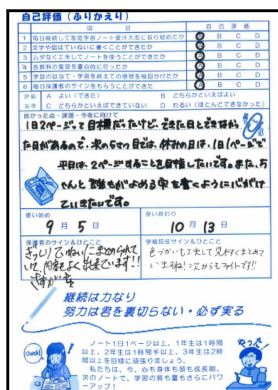 自己評価（ふりかえり）
項 目 自己評価
1 毎日継続して家庭学習ノート受け大志に取り組めたか A B C D
2 文字や図はていねいに書くことができたか A B C D
3 ムダなく工夫してノートを使うことができたか A B C D
4 各教科の復習を重点的に行ったか A B C D
5 学習の目当て・学習を終えての感想を毎回かけたか A B C D
6 毎日保護者のサインをもらうことができたか A B C D
評価 A よい（できた） B どちらかといえばよい
基準 C どちらかといえばできていない D わるい（ほとんどできなかった）
良かった点・課題・今後に向けて
1日2ページって目標だったけど、できた日とできなかっ
た日があるので、次の5マツ目では、休みの日は、1日1ページで
平日は、2ページすることを目指したいです。また、ち
ゃんと誰もがよめる字を書くように心がけ
ていきたいです。
使い始め 使い終わり
9月5日 10月13日
保護者のサイン&ひとこと 学級担任サイン&ひとこと
きっしりていねいにまとめられて
いて、内容もよく出来ています!!
色づかいも工夫して見やすくまとめて
いますね!次からもファイトです!!
継続は力なり
努力は君を裏切らない・必ず実る
ノート1日1ページ以上、1年生は1時間
以上、2年生は1時間半以上、3年生は2時
間以上を目標に頑張りましょう。
私たちは、今、心も身体も頭も成長期。
次のノートで、学習の質も量もさらにパワ
ーアップ！
check!
やったー!